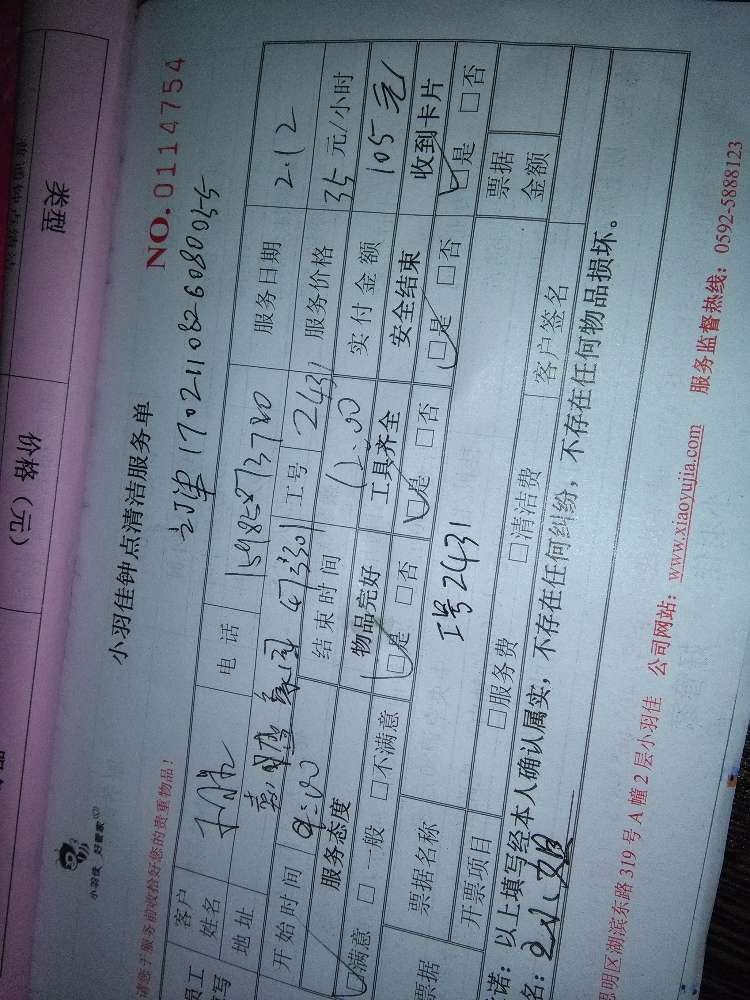 类型
价格（元）
小羽佳 好管家
小羽佳钟点清洁服务单
NO.0114754
请您于服务前收拾好您的贵重物品！
订单1702110826080055
客户姓名
电话 15985873780
服务日期 2.12
地址
473301
工号 2431
服务价格 35元/小时
开始时间 9:00
结束时间 12:00
实付金额 105元
服务态度 物品完好 工具齐全 安全结束 收到卡片
□满意 □一般 □不满意 □是 □否 □是 □否 □是 □否 □是 □否
票据
票据名称 工号2431
票据金额
开票项目 □服务费 □清洁费
客户签名
诺：以上填写经本人确认属实，不存在任何纠纷，不存在任何物品损坏。
名：
思明区湖滨东路319号A幢2层小羽佳 公司网站：www.xiaoyujia.com 服务监督热线：0592-5888123